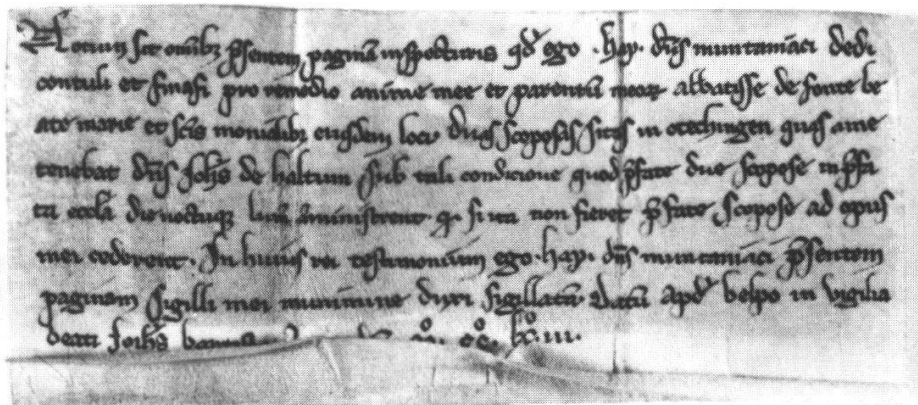 Notum sit omibz psentem paginā inspecturis qd ego . hay . dns muntaniaci dedi
contuli et finasi pro remedio anime mee et parentū meoꝝ abbatisse de fonte be
ate marie et scis monialibz eiusdem loci duas scoposas sitas in otechingen quas a me
tenebat dns Johs de haltum sub tali condicione quod pfate due scopose in pfa
ta eccla die noctuqz ministrent si ita non fieret pfate scopose ad opus
mei cederent . In huius rei testimonium ego . hay . dns muntaniaci psentem
paginam sigilli mei munimine duxi sigillatā . Datū apd belpo in vigilia
beati Johs